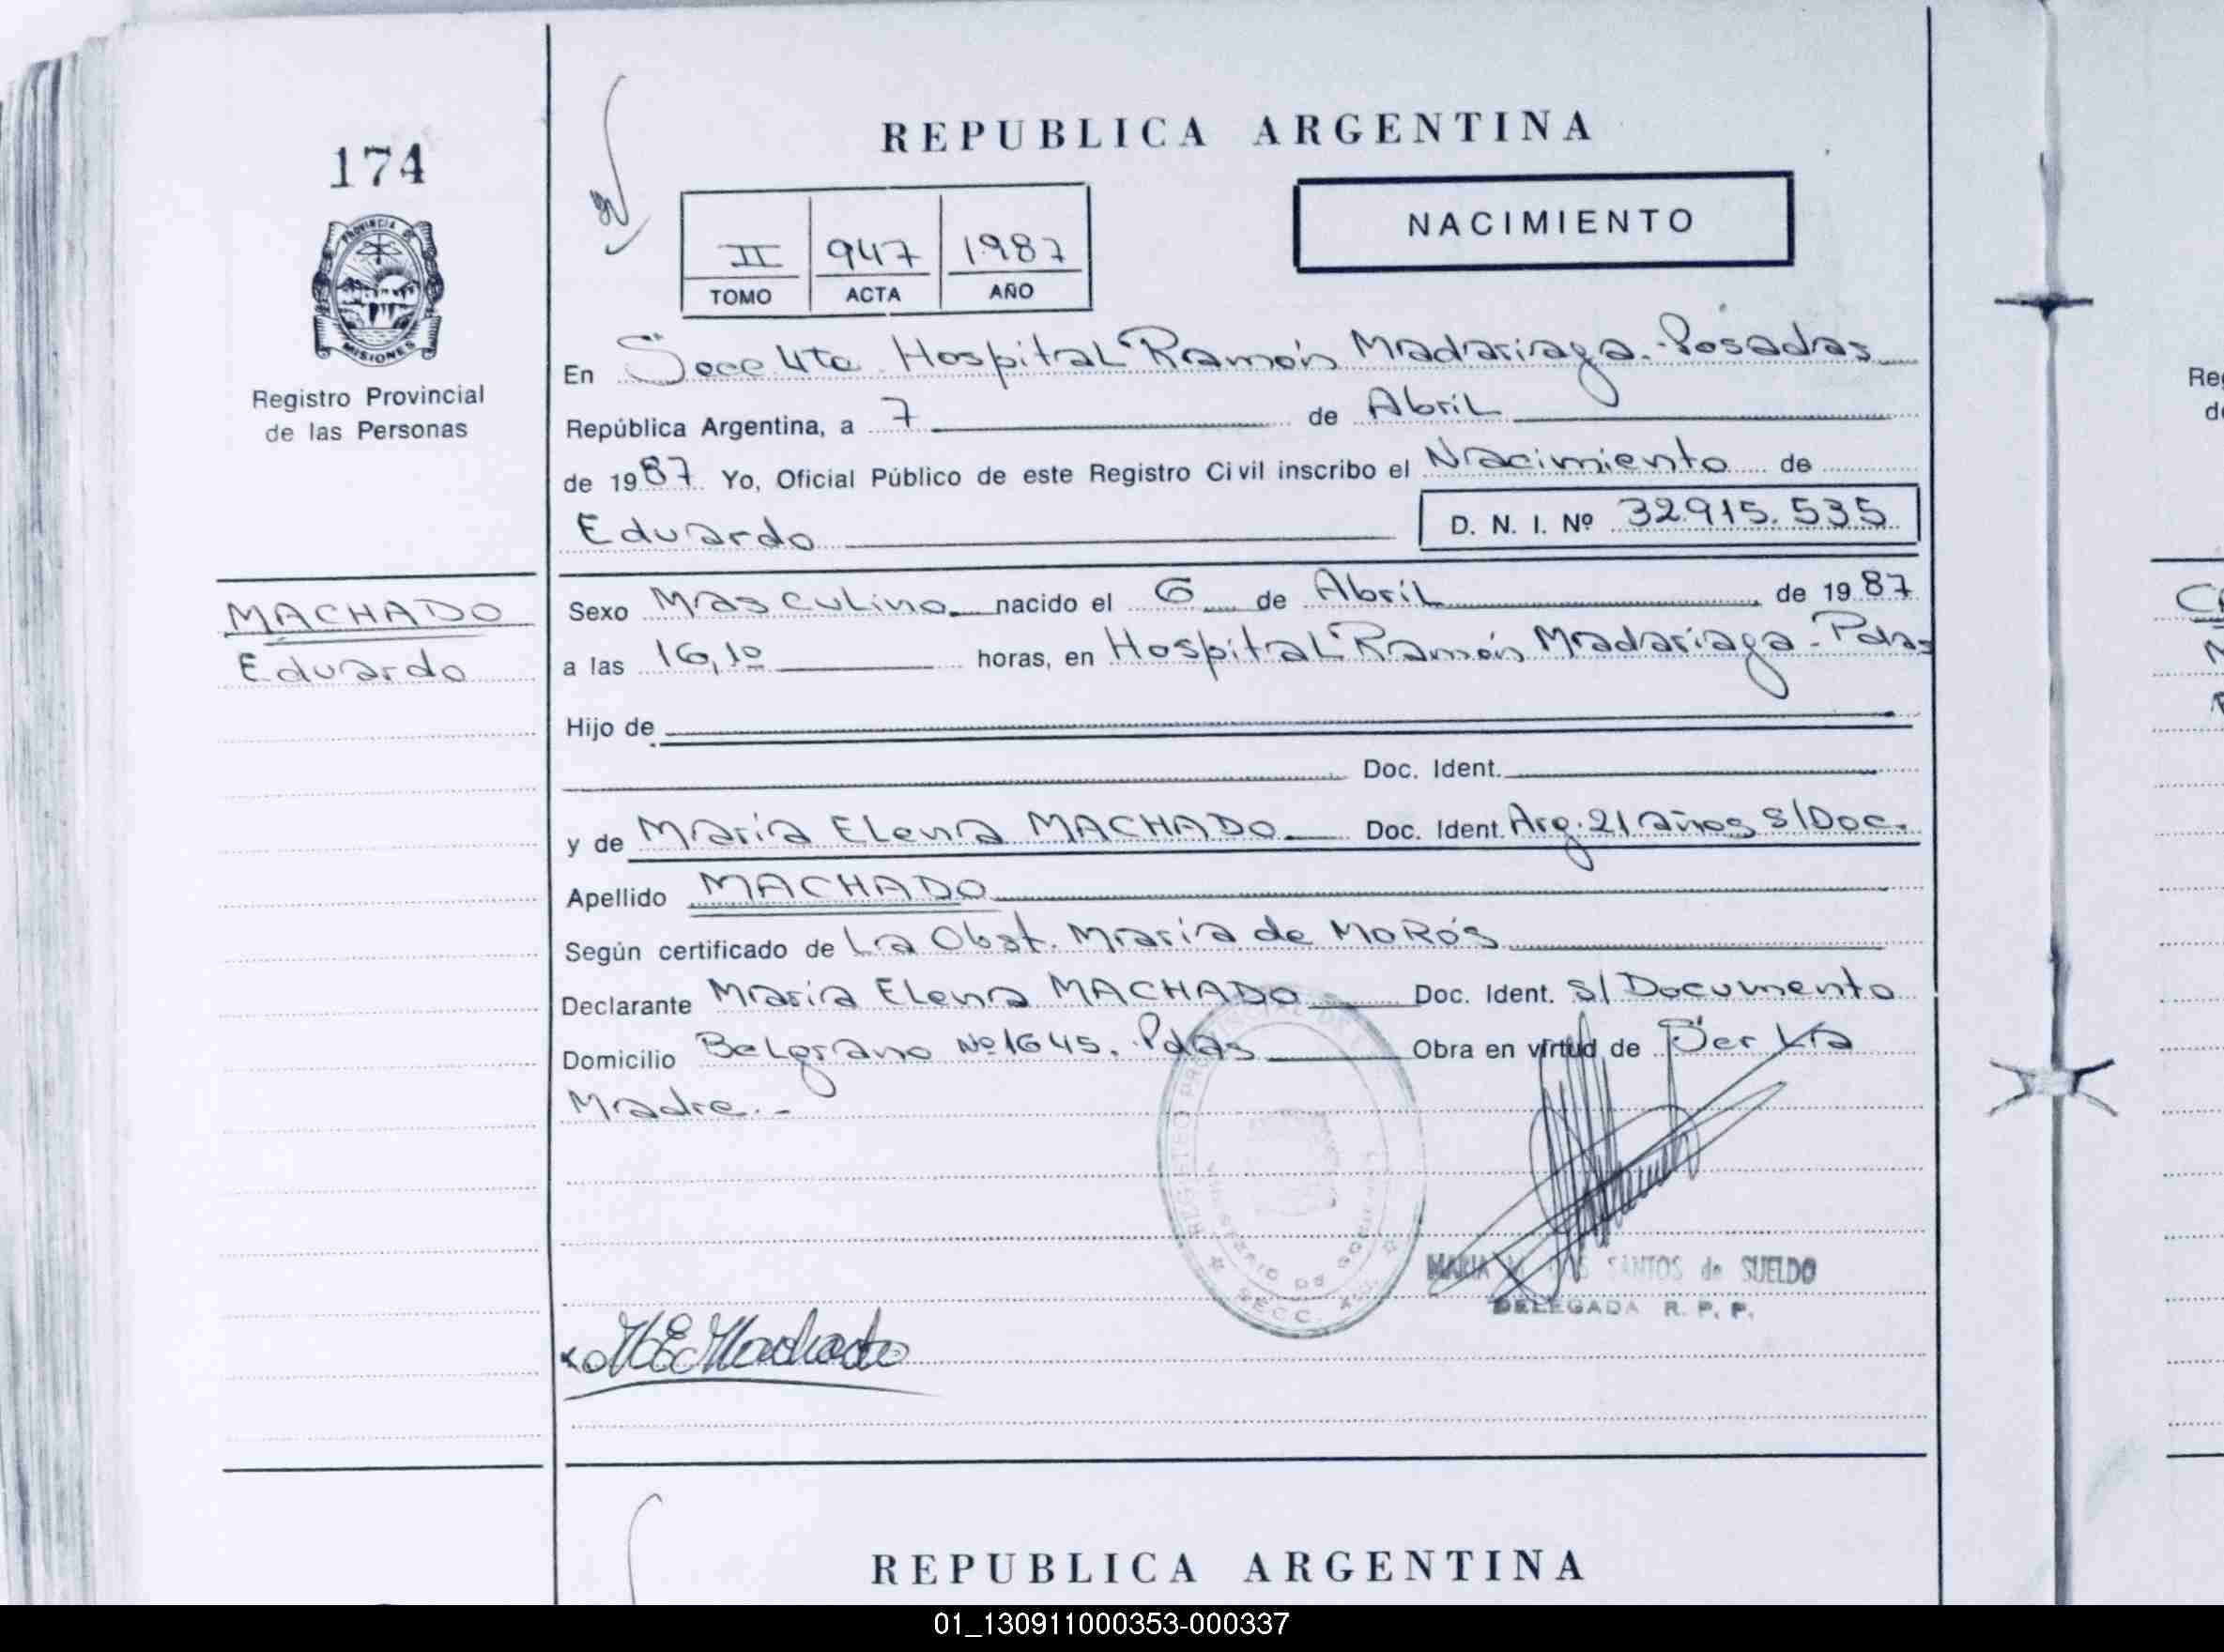 174
PROVINCIA DE
MISIONES
Registro Provincial
de las Personas
MACHADO
Eduardo
REPUBLICA ARGENTINA
NACIMIENTO
II 947 1987
TOMO ACTA AÑO
En Secc 4ta Hospital "Ramón Madariaga.- Posadas
República Argentina, a 7 de Abril
de 1987 Yo, Oficial Público de este Registro Civil inscribo el Nacimiento de
Eduardo D. N. I. Nº 32.915.535
Sexo Masculino nacido el 6 de Abril de 1987
a las 16,10 horas, en Hospital "Ramón Madariaga - Pdas
Hijo de
Doc. Ident.
y de María Elena MACHADO Doc. Ident. Arg. 21 años S/Doc.
Apellido MACHADO
Según certificado de La Obst. María de MoRós
Declarante María Elena MACHADO Doc. Ident. S/ Documento
Domicilio Belgrano Nº 1645. Pdas Obra en virtud de Ser La
Madre.-
REGISTRO PROVINCIAL DE
SECC. 4
MARIA SANTOS de SUELDO
DELEGADA R. P. P.
M E Machado
REPUBLICA ARGENTINA
Reg
01_130911000353-000337